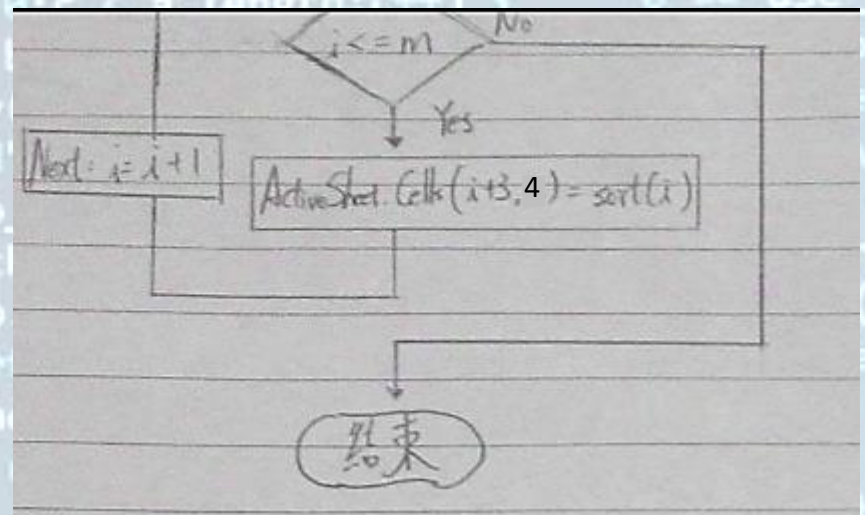 No
i<=m
Yes
Next: i=i+1
ActiveSheet.Cells(i+3,4)=sort(i)
結束